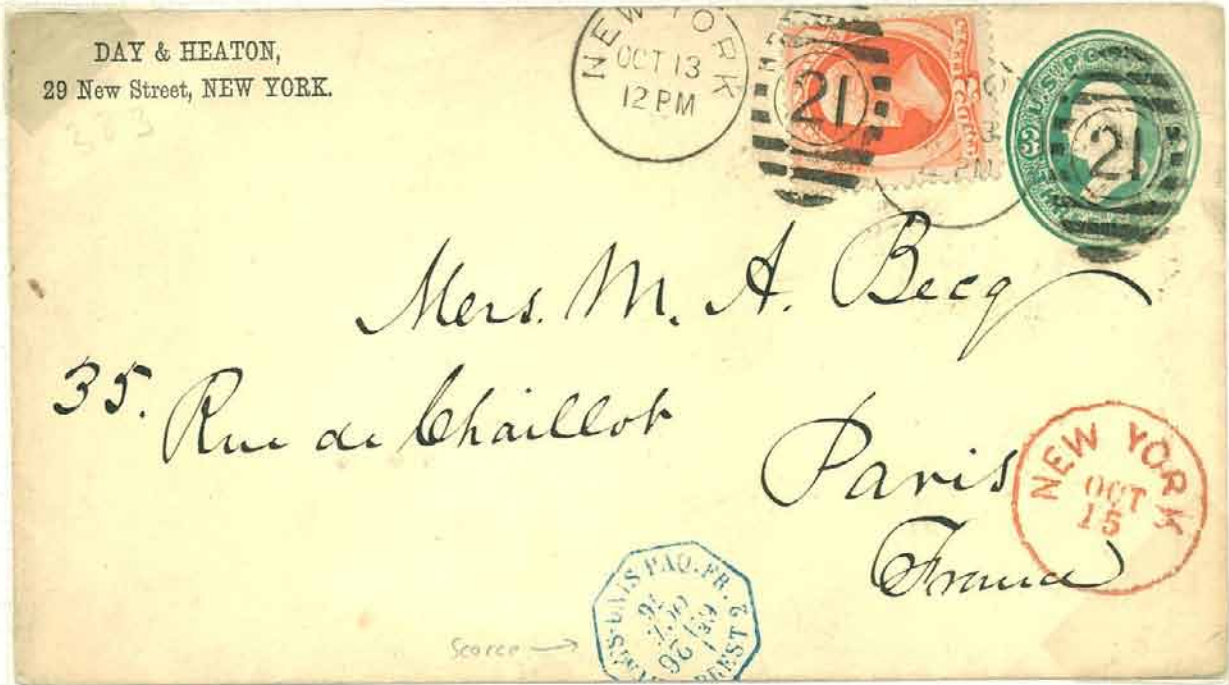 DAY & HEATON,
29 New Street, NEW YORK.
383
NEW YORK
OCT 13
12 PM
21
21
U.S. PO
3
PM
Mers. M. A. Becq
35. Rue de Chaillot
Paris
France
NEW YORK
OCT
15
ETATS-UNIS PAQ. FR. 2
BREST
26
OCT.
76
Scarce